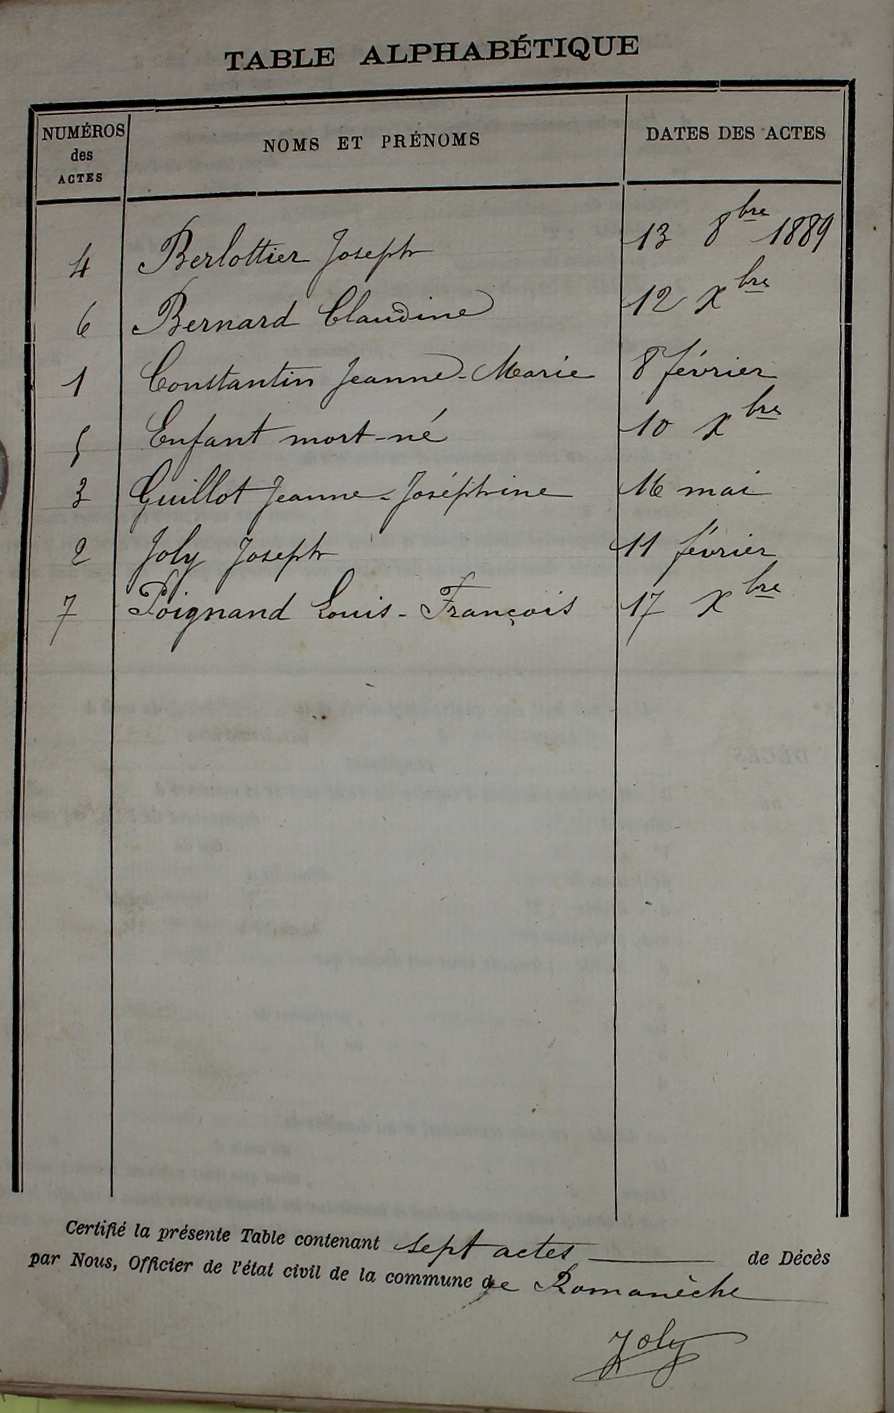 TABLE ALPHABÉTIQUE
NUMÉROS des ACTES NOMS ET PRÉNOMS DATES DES ACTES
4 Berlottier Joseph 13 8bre 1889
6 Bernard Claudine 12 Xbre
1 Constantin Jeanne-Marie 8 février
5 Enfant mort-né 10 Xbre
3 Guillot Jeanne-Joséphine 16 mai
2 Joly Joseph 11 février
7 Poignand Louis-François 17 Xbre
Certifié la présente Table contenant sept actes de Décès
par Nous, Officier de l'état civil de la commune de Romanèche
Joly